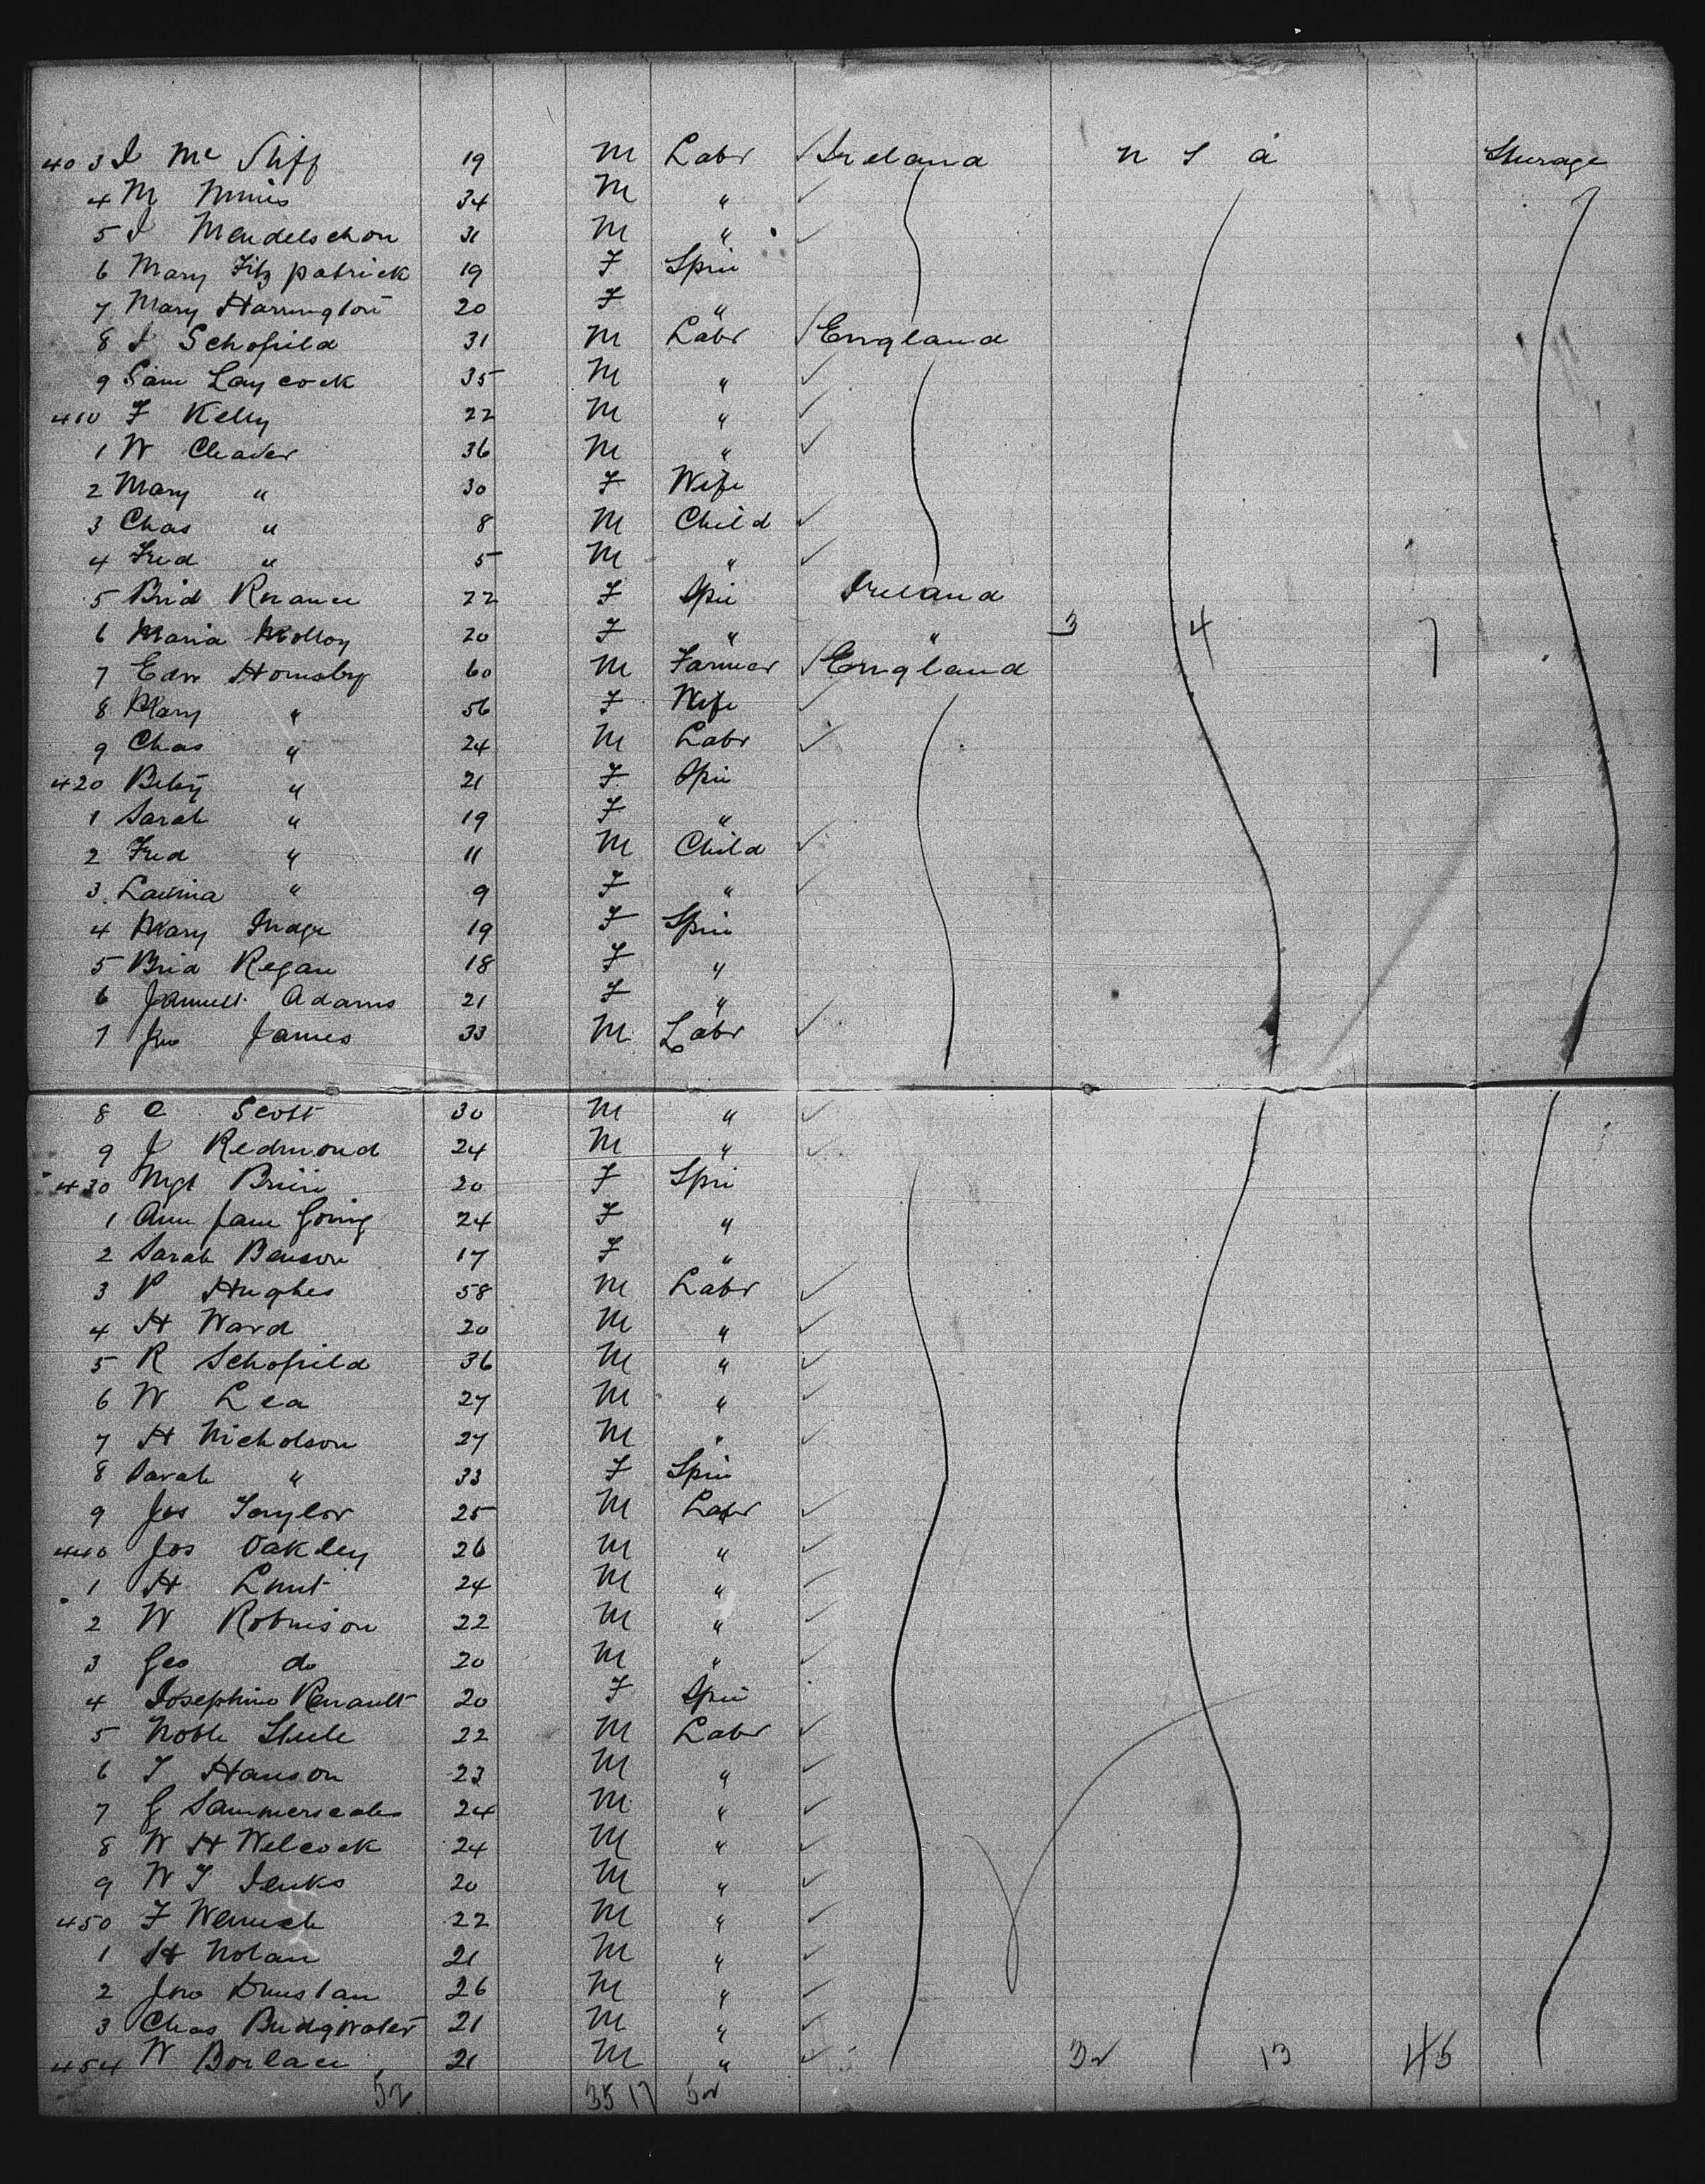 403 J Mc Sliff 19 M Labr Ireland U S A Steerage
4 M Minis 34 M "
5 J Mendelschon 31 M "
6 Mary Fitzpatrick 19 F Spin
7 Mary Harrington 20 F "
8 J Schofield 31 M Labr England
9 Sam Laycock 35 M "
410 F Kelly 22 M "
1 W Cleaver 36 M "
2 Mary " 30 F Wife
3 Chas " 8 M Child
4 Fred " 5 M "
5 Brid 22 F Spin Ireland
6 Maria Molloy 20 F " " 3 4 7
7 Edw Hornsby 60 M Farmer England
8 Mary " 56 F Wife
9 Chas " 24 M Labr
420 Betsy " 21 F Spin
1 Sarah " 19 F "
2 Fred " 11 M Child
3 Lavinia " 9 F "
4 Mary Judge 19 F Spin
5 Brid Regan 18 F "
6 Adams 21 F "
7 Jno James 33 M Labr
8 C Scott 30 M "
9 J Redmond 24 M "
430 Mgt 20 F Spin
1 Ann Jane Going 24 F "
2 Sarah Benson 17 F "
3 P Hughes 58 M Labr
4 H Ward 20 M "
5 R Schofield 36 M "
6 W Lea 27 M "
7 H Nicholson 27 M "
8 Sarah " 33 F Spin
9 Jos Taylor 25 M Labr
440 Jos Oakley 26 M "
1 H 24 M "
2 W Robinson 22 M "
3 Geo do 20 M "
4 Josephine Renault 20 F Spin
5 Noble Steele 22 M Labr
6 T Hanson 23 M "
7 G Sammerscales 24 M "
8 W H Welcock 24 M "
9 W J Jenks 20 M "
450 F 22 M "
1 H Nolan 21 M "
2 Jno Dunstan 26 M "
3 Chas Bridgwater 21 M "
454 W Borlace 21 M " 32 13 45
52 35 17 52